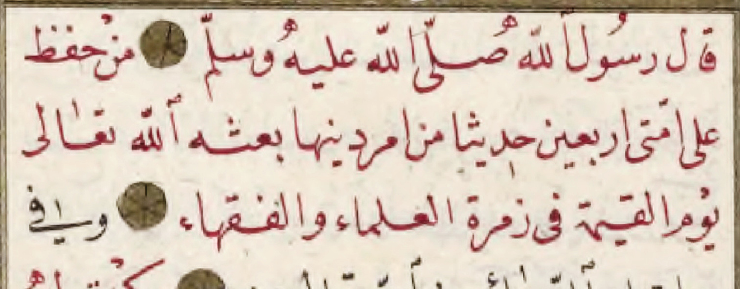 قال رسول الله صلى الله عليه وسلم من حفظ
على امتى اربعين حديثا من امر دينها بعثه الله تعالى
يوم القيمة فى زمرة العلماء والفقهاء وفي